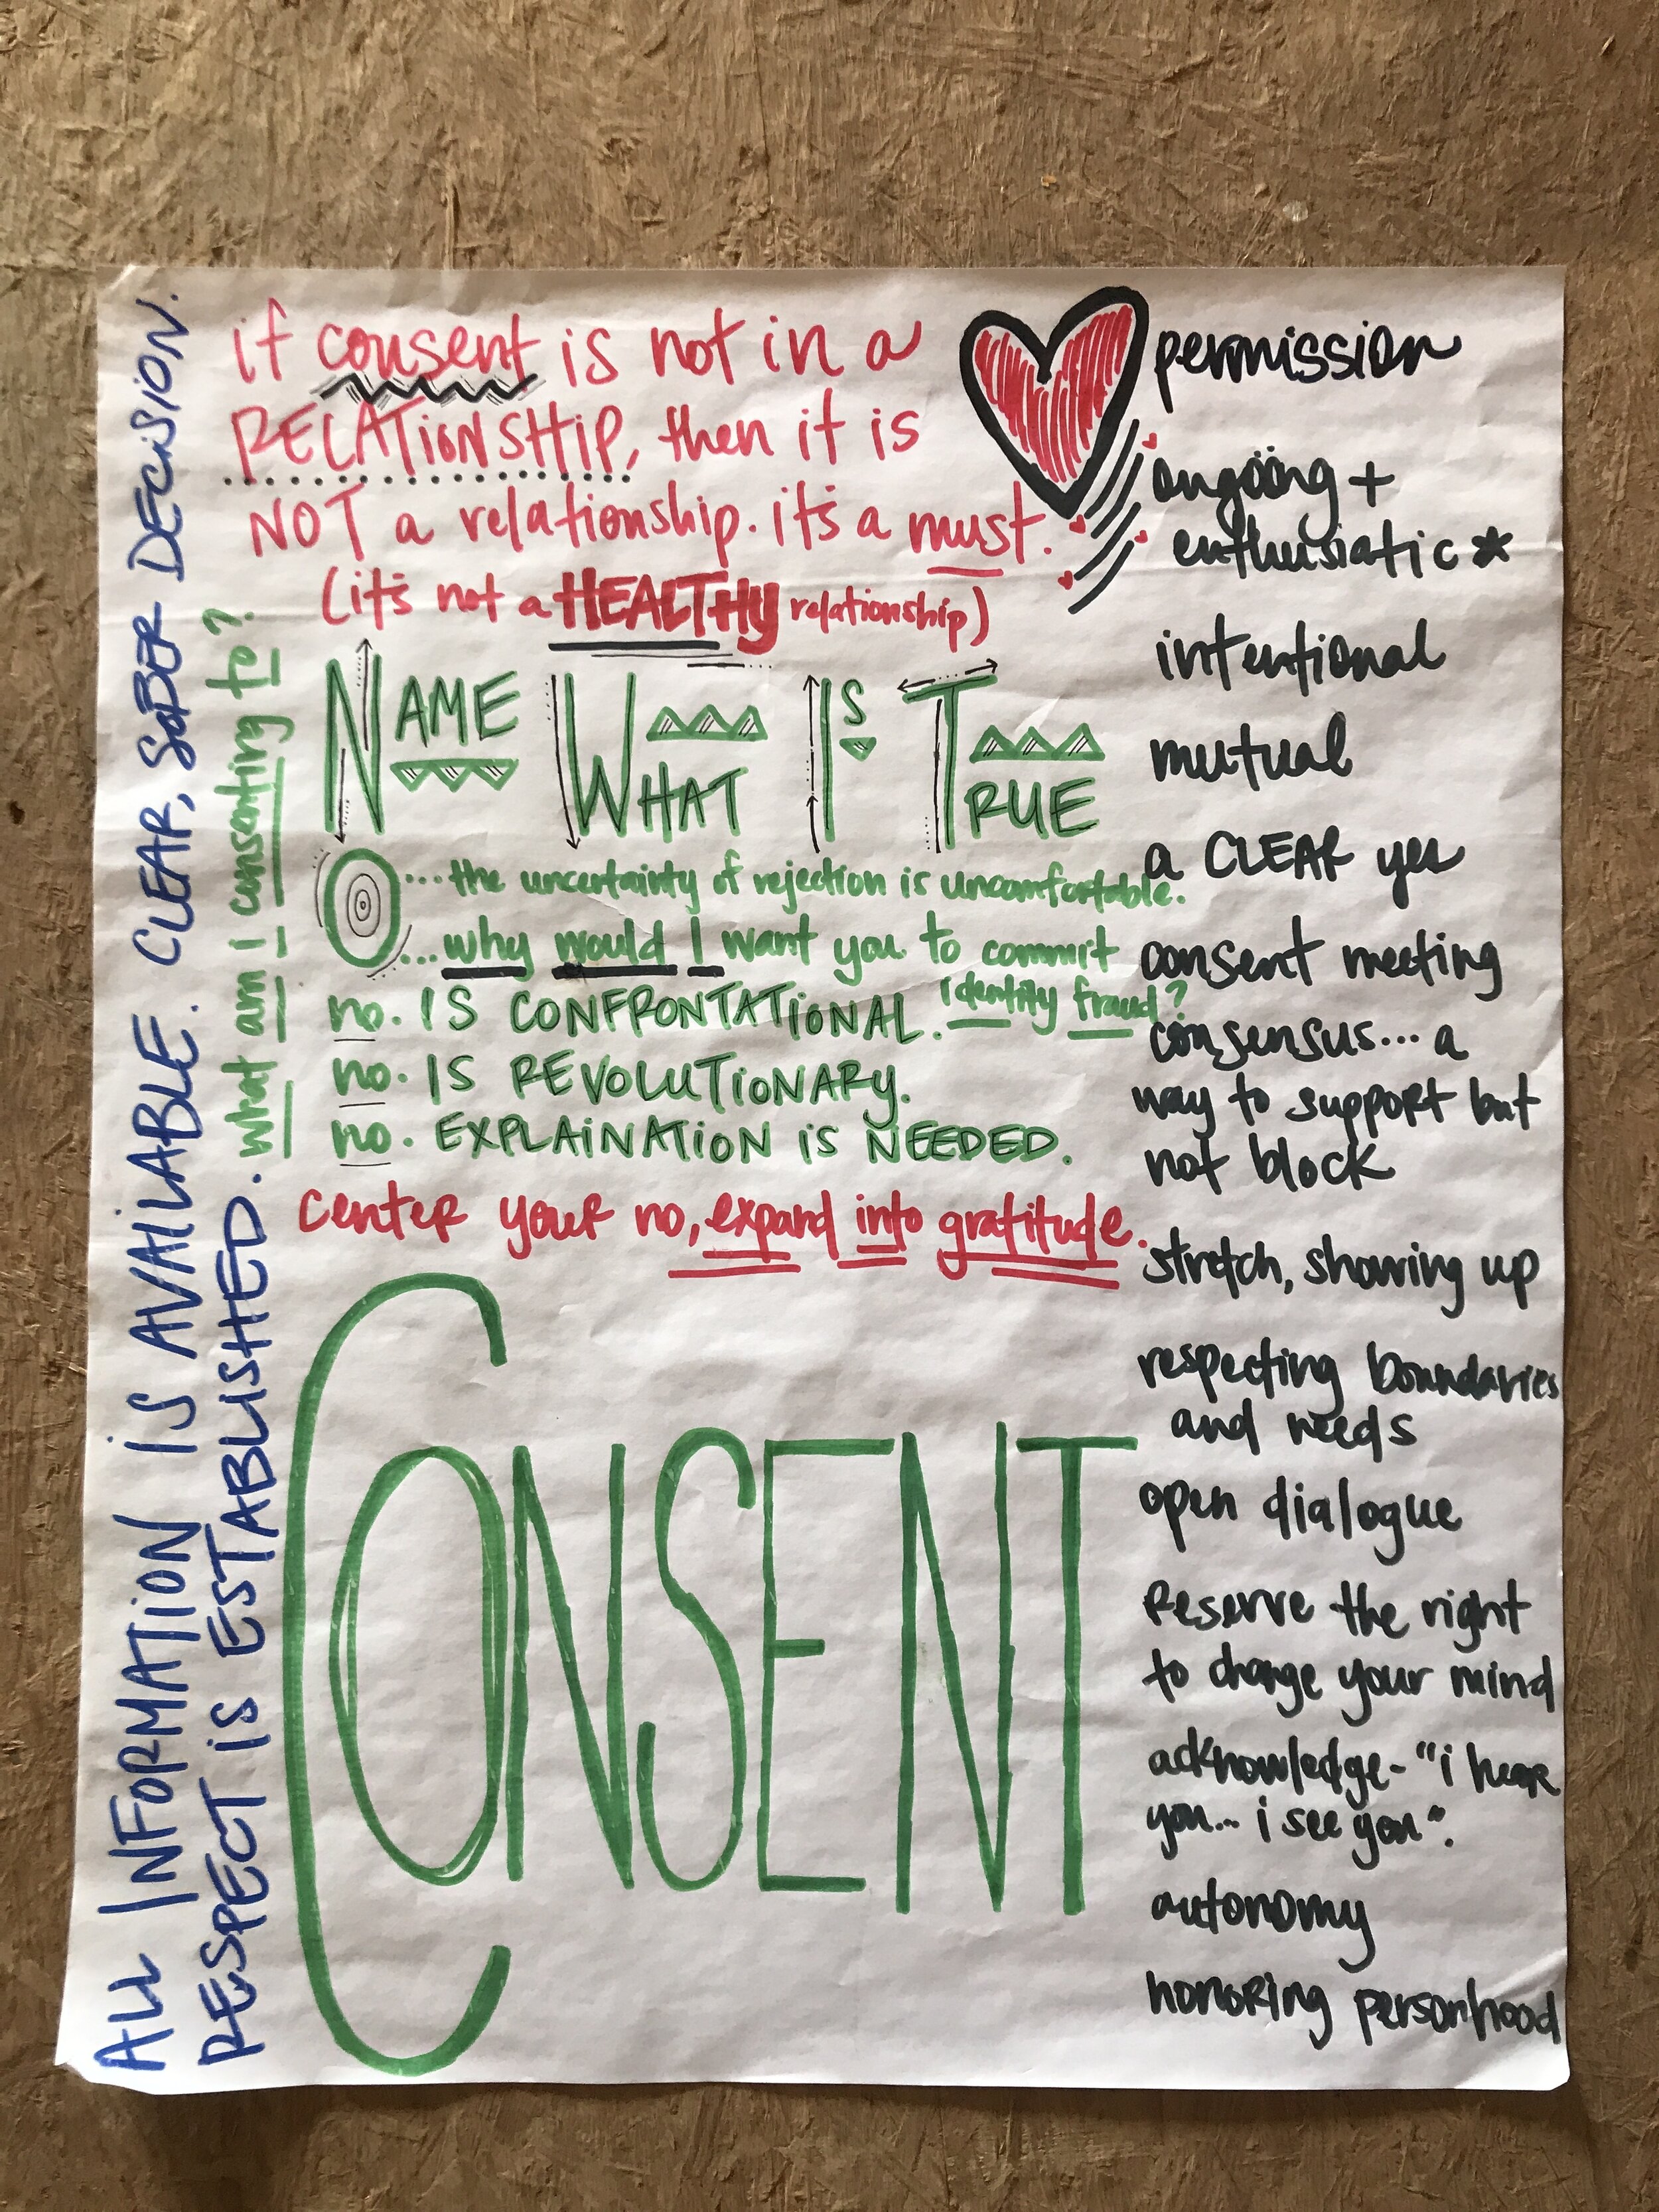 ALL INFORMATION IS AVAILABLE. CLEAR, SOBER DECISION.
RESPECT IS ESTABLISHED. what am i consenting to?
if consent is not in a
RELATIONSHIP, then it is
NOT a relationship. it's a must.
(it's not a HEALTHY relationship)
NAME WHAT IS TRUE
...the uncertainty of rejection is uncomfortable.
...why would I want you to commit
identity fraud?
no. IS CONFRONTATIONAL.
no. IS REVOLUTIONARY.
no. EXPLAINATION IS NEEDED.
center your no, expand into gratitude.
CONSENT
permission
ongoing +
enthusiatic*
intentional
mutual
a CLEAR yes
consent meeting
consensus... a
way to support but
not block
stretch, showing up
respecting boundaries
and needs
open dialogue
Reserve the right
to change your mind
acknowledge- "i hear
you... i see you".
autonomy
honoring personhood